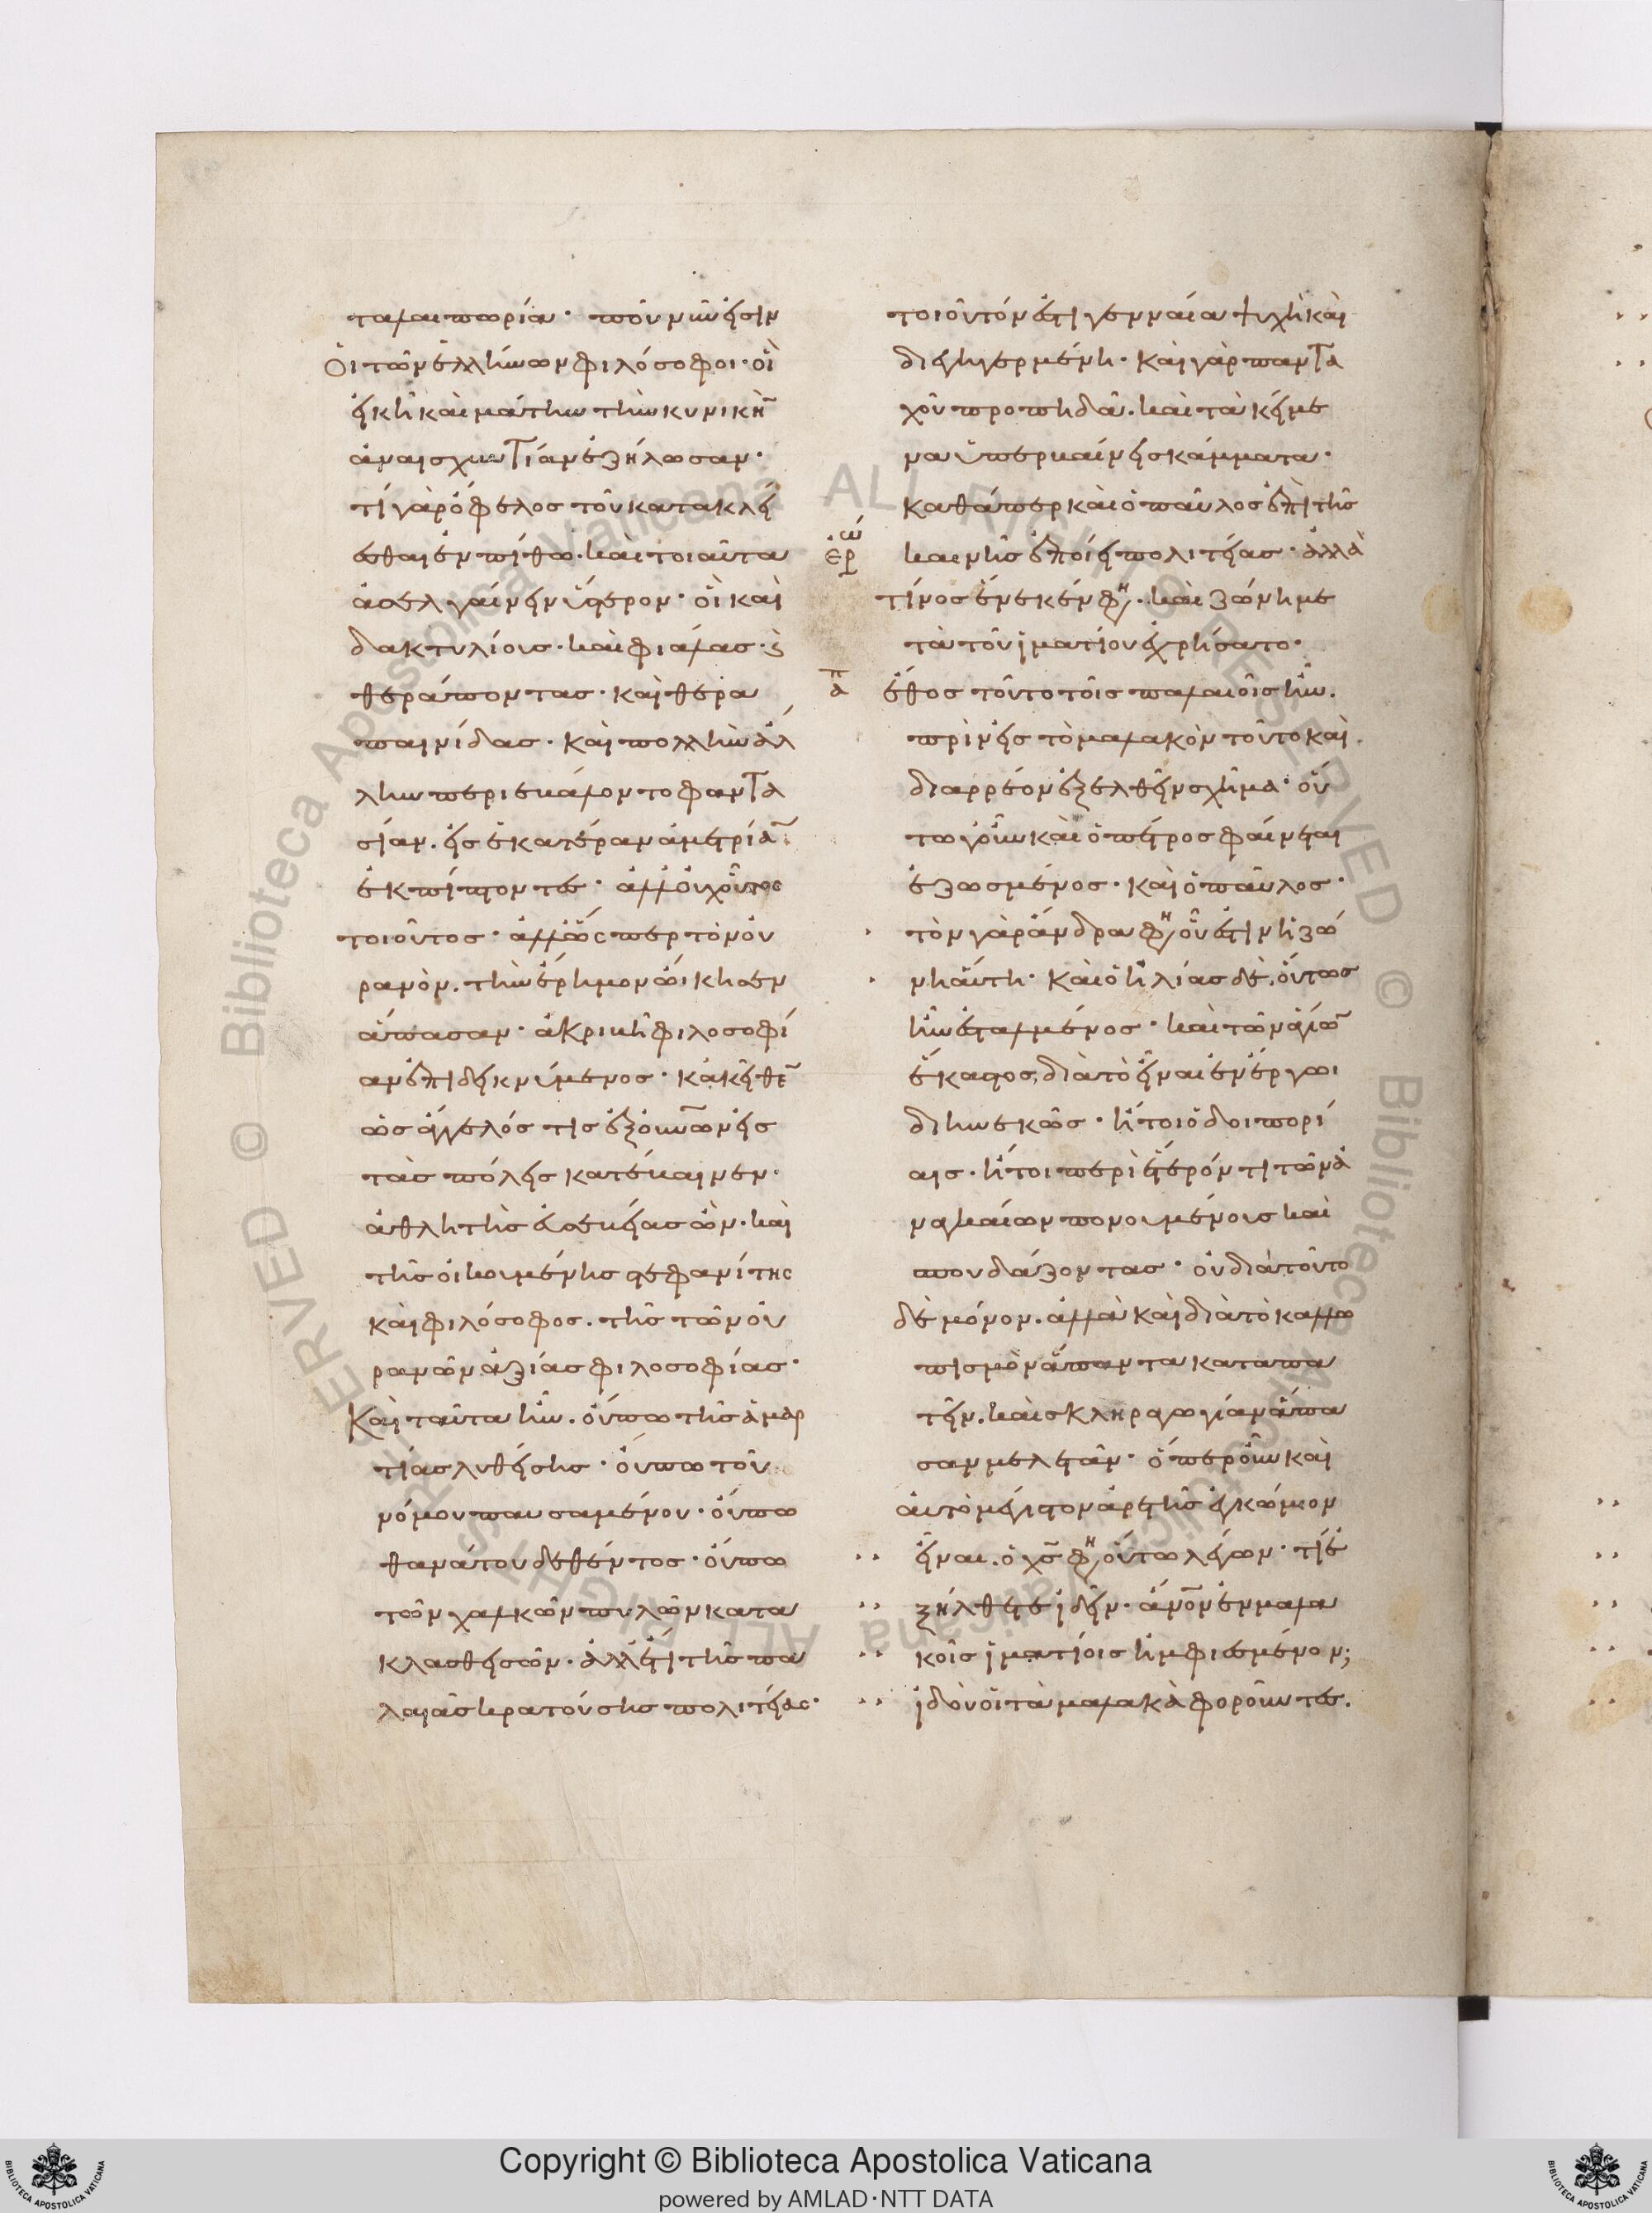 ταλαιπωρία· ποῦ νῦν εἰσὶν
οἱ τῶν ἑλλήνων φιλόσοφοι· οἱ
εἰκῆ καὶ μάτην τὴν κυνικὴν
ἀναισχυντίαν ἐζήλωσαν·
τί γὰρ ὄφελος τοῦ κατακλεί
εσθαι ἐν πίθω. καὶ τοιαῦτα
ἀσελγαίνειν ὕστερον· οἱ καὶ
δακτυλίους. καὶ φιάλας. καὶ
θεράποντας. καὶ θερα
παινίδας. καὶ πολλὴν ἄλ
λην περιεβάλοντο φαντα
σίαν. εἰς ἑκατέραν ἀμετρίαν
ἐκπίπτοντες· ἀλλ' οὐχ οὗτος
τοιοῦτος· ἀλλ' ὥσπερ τὸν οὐ
ρανὸν. τὴν ἔρημον ὤικησεν
ἅπασαν· ἀκριβῆ φιλοσοφί
αν ἐπιδεικνύμενος· κἀκεῖθεν
ὡς ἄγγελός τις ἐξ οὐρανῶν εἰς
τὰς πόλεις κατέβαινεν·
ἀθλητὴς εὐσεβείας ὢν. καὶ
τῆς οἰκουμένης στεφανίτης
καὶ φιλόσοφος. τῆς τῶν οὐ
ρανῶν ἀξίας φιλοσοφίας·
Καὶ ταῦτα ἦν. οὔπω τῆς ἁμαρ
τίας λυθείσης· οὔπω τοῦ
νόμου παυσαμένου· οὔπω
θανάτου δεθέντος· οὔπω
τῶν χαλκῶν πυλῶν κατα
κλασθεισῶν. ἀλλ' ἔτι τῆς πα
λαιᾶς κρατούσης πολιτείας·
τοιοῦτόν ἐστι γενναία ψυχὴ καὶ
διεγηγερμένη· καὶ γὰρ παντα
χοῦ προπηδᾶ. καὶ τὰ κείμε
να ὑπερβαίνει σκάμματα·
καθάπερ καὶ ὁ παῦλος ἐπὶ τῆς
ἐρώ καινῆς ἐποίει πολιτείας· ἀλλὰ
τίνος ἕνεκέν φη. καὶ ζώνη με
τὰ τοῦ ἱματίου ἐχρήσατο·
ἀπ ἔθος τοῦτο τοῖς παλαιοῖς ἦν.
πρὶν εἰς τὸ μαλακὸν τοῦτο καὶ
διαρρέον ἐξελθεῖν σχῆμα· οὕ
τω γοῦν καὶ ὁ πέτρος φαίνεται
ἐζωσμένος· καὶ ὁ παῦλος·
τὸν γὰρ ἄνδρα φη οὗ ἐστὶν ἡ ζώ
νη αὕτη· καὶ ὁ ἠλίας δὲ. οὕτως
ἦν ἐσταλμένος· καὶ τῶν ἁγίων
ἕκαστος, διὰ τὸ εἶναι ἐν ἔργωι
διηνεκῶς· ἤτοι ὁδοιπορί
αις. ἤτοι περὶ ἕτερόν τι τῶν ἀ
ναγκαίων πονουμένους καὶ
σπουδάζοντας· οὐ διὰ τοῦτο
δὲ μόνον. ἀλλὰ καὶ διὰ τὸ καλλω
πισμὸν ἅπαντα καταπα
τεῖν. καὶ σκληραγωγίαν ἅπα
σαν μελετᾶν· ὅπερ οὖν καὶ
αὐτὸ μέγιστον ἀρετῆς ἐγκώμιον
εἶναι. ὁ χς φη οὕτω λέγων· τί ἐ
ξήλθετε ἰδεῖν· ἄνον ἐν μαλα
κοῖς ἱματίοις ἠμφιεσμένον;
ἰδοὺ οἱ τὰ μαλακὰ φοροῦντες.
Copyright © Biblioteca Apostolica Vaticana
powered by AMLAD·NTT DATA